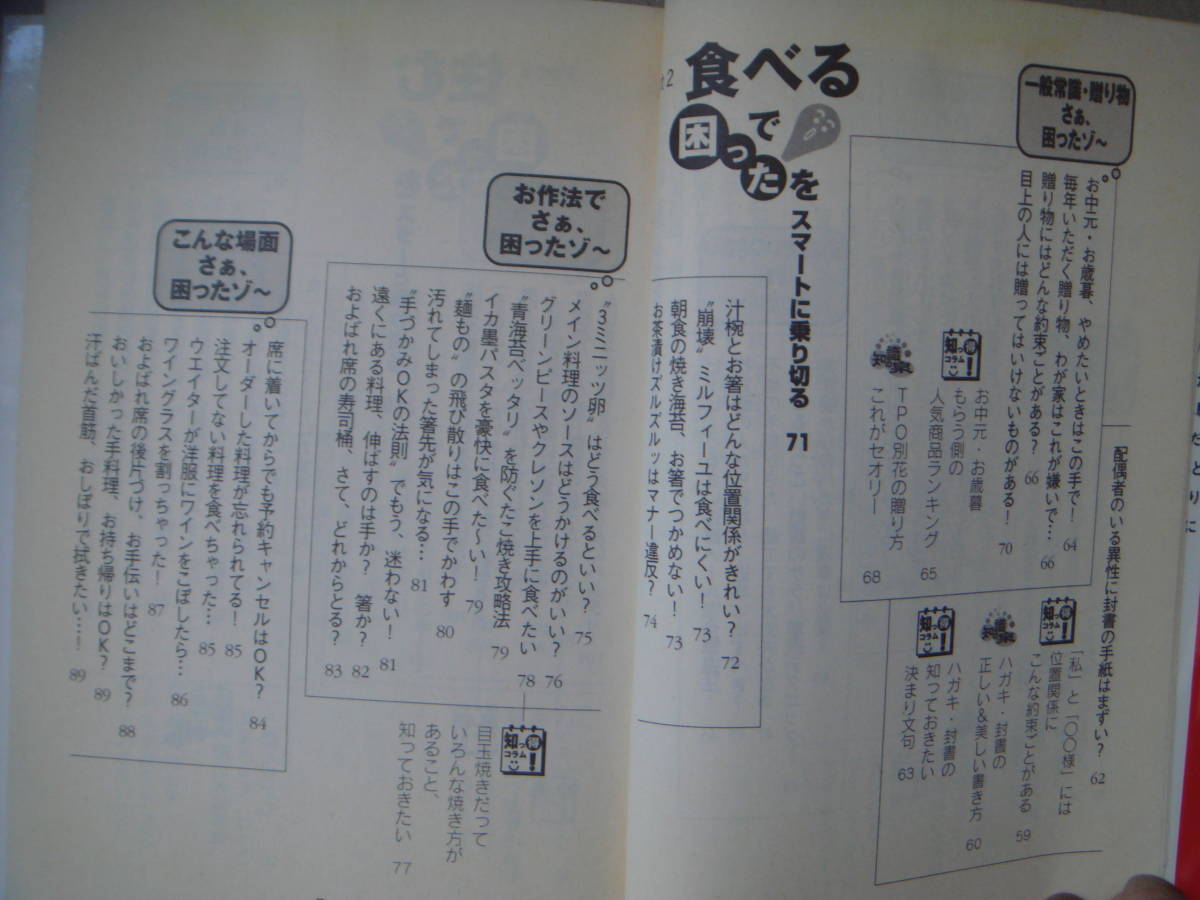 配偶者のいる異性に封書の手紙はまずい? 62
知っ得!コラム
「私」と「〇〇様」には
位置関係に
こんな約束ごとがある 59
ハガキ・封書の
正しい&美しい書き方 60
知っ得!コラム
ハガキ・封書の
知っておきたい
決まり文句 63
一般常識・贈り物
さぁ、
困ったゾ〜
お中元・お歳暮、やめたいときはこの手で! 64
毎年いただく贈り物、わが家はこれが嫌いで… 66
贈り物にはどんな約束ごとがある? 66
目上の人には贈ってはいけないものがある! 70
知っ得!コラム
お中元・お歳暮
もらう側の
人気商品ランキング 65
TPO別花の贈り方
これがセオリー 68
2
食べる
で
困ったを
スマートに乗り切る 71
汁椀とお箸はどんな位置関係がきれい? 72
〝崩壊〟ミルフィーユは食べにくい! 73
朝食の焼き海苔、お箸でつかめない! 73
お茶漬けズルズルッはマナー違反? 74
お作法で
さぁ、
困ったゾ〜
〝3ミニッツ卵〟はどう食べるといい? 75
メイン料理のソースはどうかけるのがいい? 76
グリーンピースやクレソンを上手に食べたい 78
〝青海苔ベッタリ〟を防ぐたこ焼き攻略法 79
イカ墨パスタを豪快に食べた〜い! 79
〝麺もの〟の飛び散りはこの手でかわす 80
汚れてしまった箸先が気になる… 81
〝手づかみOKの法則〟でもう、迷わない! 81
遠くにある料理、伸ばすのは手か? 箸か? 82
およばれ席の寿司桶、さて、どれからとる? 83
知っ得!コラム
目玉焼きだって
いろんな焼き方が
あること、
知っておきたい 77
こんな場面
さぁ、
困ったゾ〜
席に着いてからでも予約キャンセルはOK? 84
オーダーした料理が忘れられてる! 85
注文してない料理を食べちゃった… 85
ウエイターが洋服にワインをこぼしたら… 86
ワイングラスを割っちゃった! 87
およばれ席の後片づけ、お手伝いはどこまで? 88
おいしかった手料理、お持ち帰りはOK? 89
汗ばんだ首筋、おしぼりで拭きたい…! 89